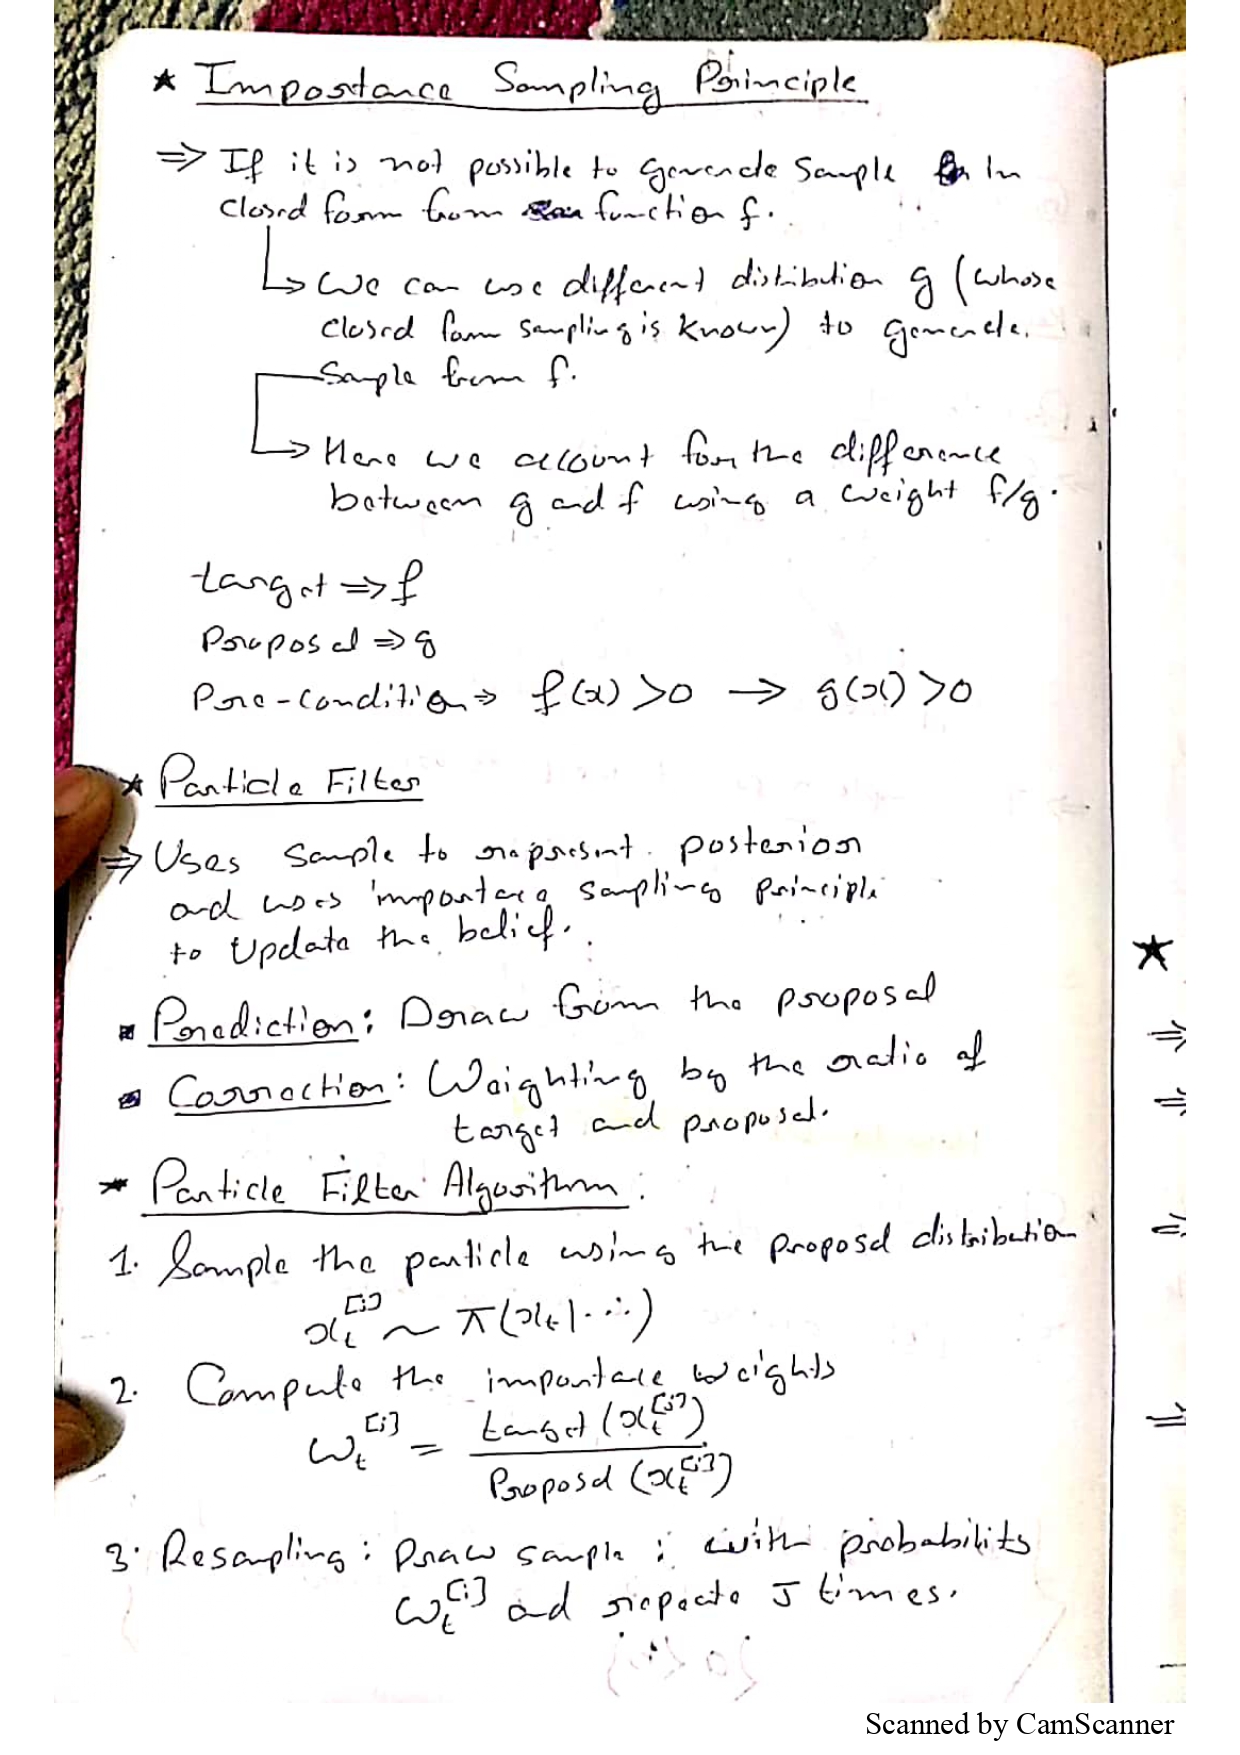 ★ Importance Sampling Principle
⇒ If it is not possible to generate sample in
closed form from function f.
↳ We can use different distribution g (whose
closed form sampling is known) to generate
sample from f.
↳ Here we account for the difference
between g and f using a weight f/g.
target ⇒ f
Proposal ⇒ g
Pre-condition ⇒ f(x) >0 → g(x) >0
★ Particle Filter
⇒ Uses sample to represent posterior
and uses importance sampling principle
to update the belief.
▪ Prediction: Draw from the proposal
▪ Correction: Weighting by the ratio of
target and proposal.
★ Particle Filter Algorithm:
1. Sample the particle using the proposal distribution
x_t^[i] ~ π(x_t|...)
2. Compute the importance weights
w_t^[i] = target (x_t^[i]) / Proposal (x_t^[i])
3. Resampling: Draw sample i with probability
w_t^[i] and repeate J times.
★
⇒
⇒
⇒
⇒
Scanned by CamScanner